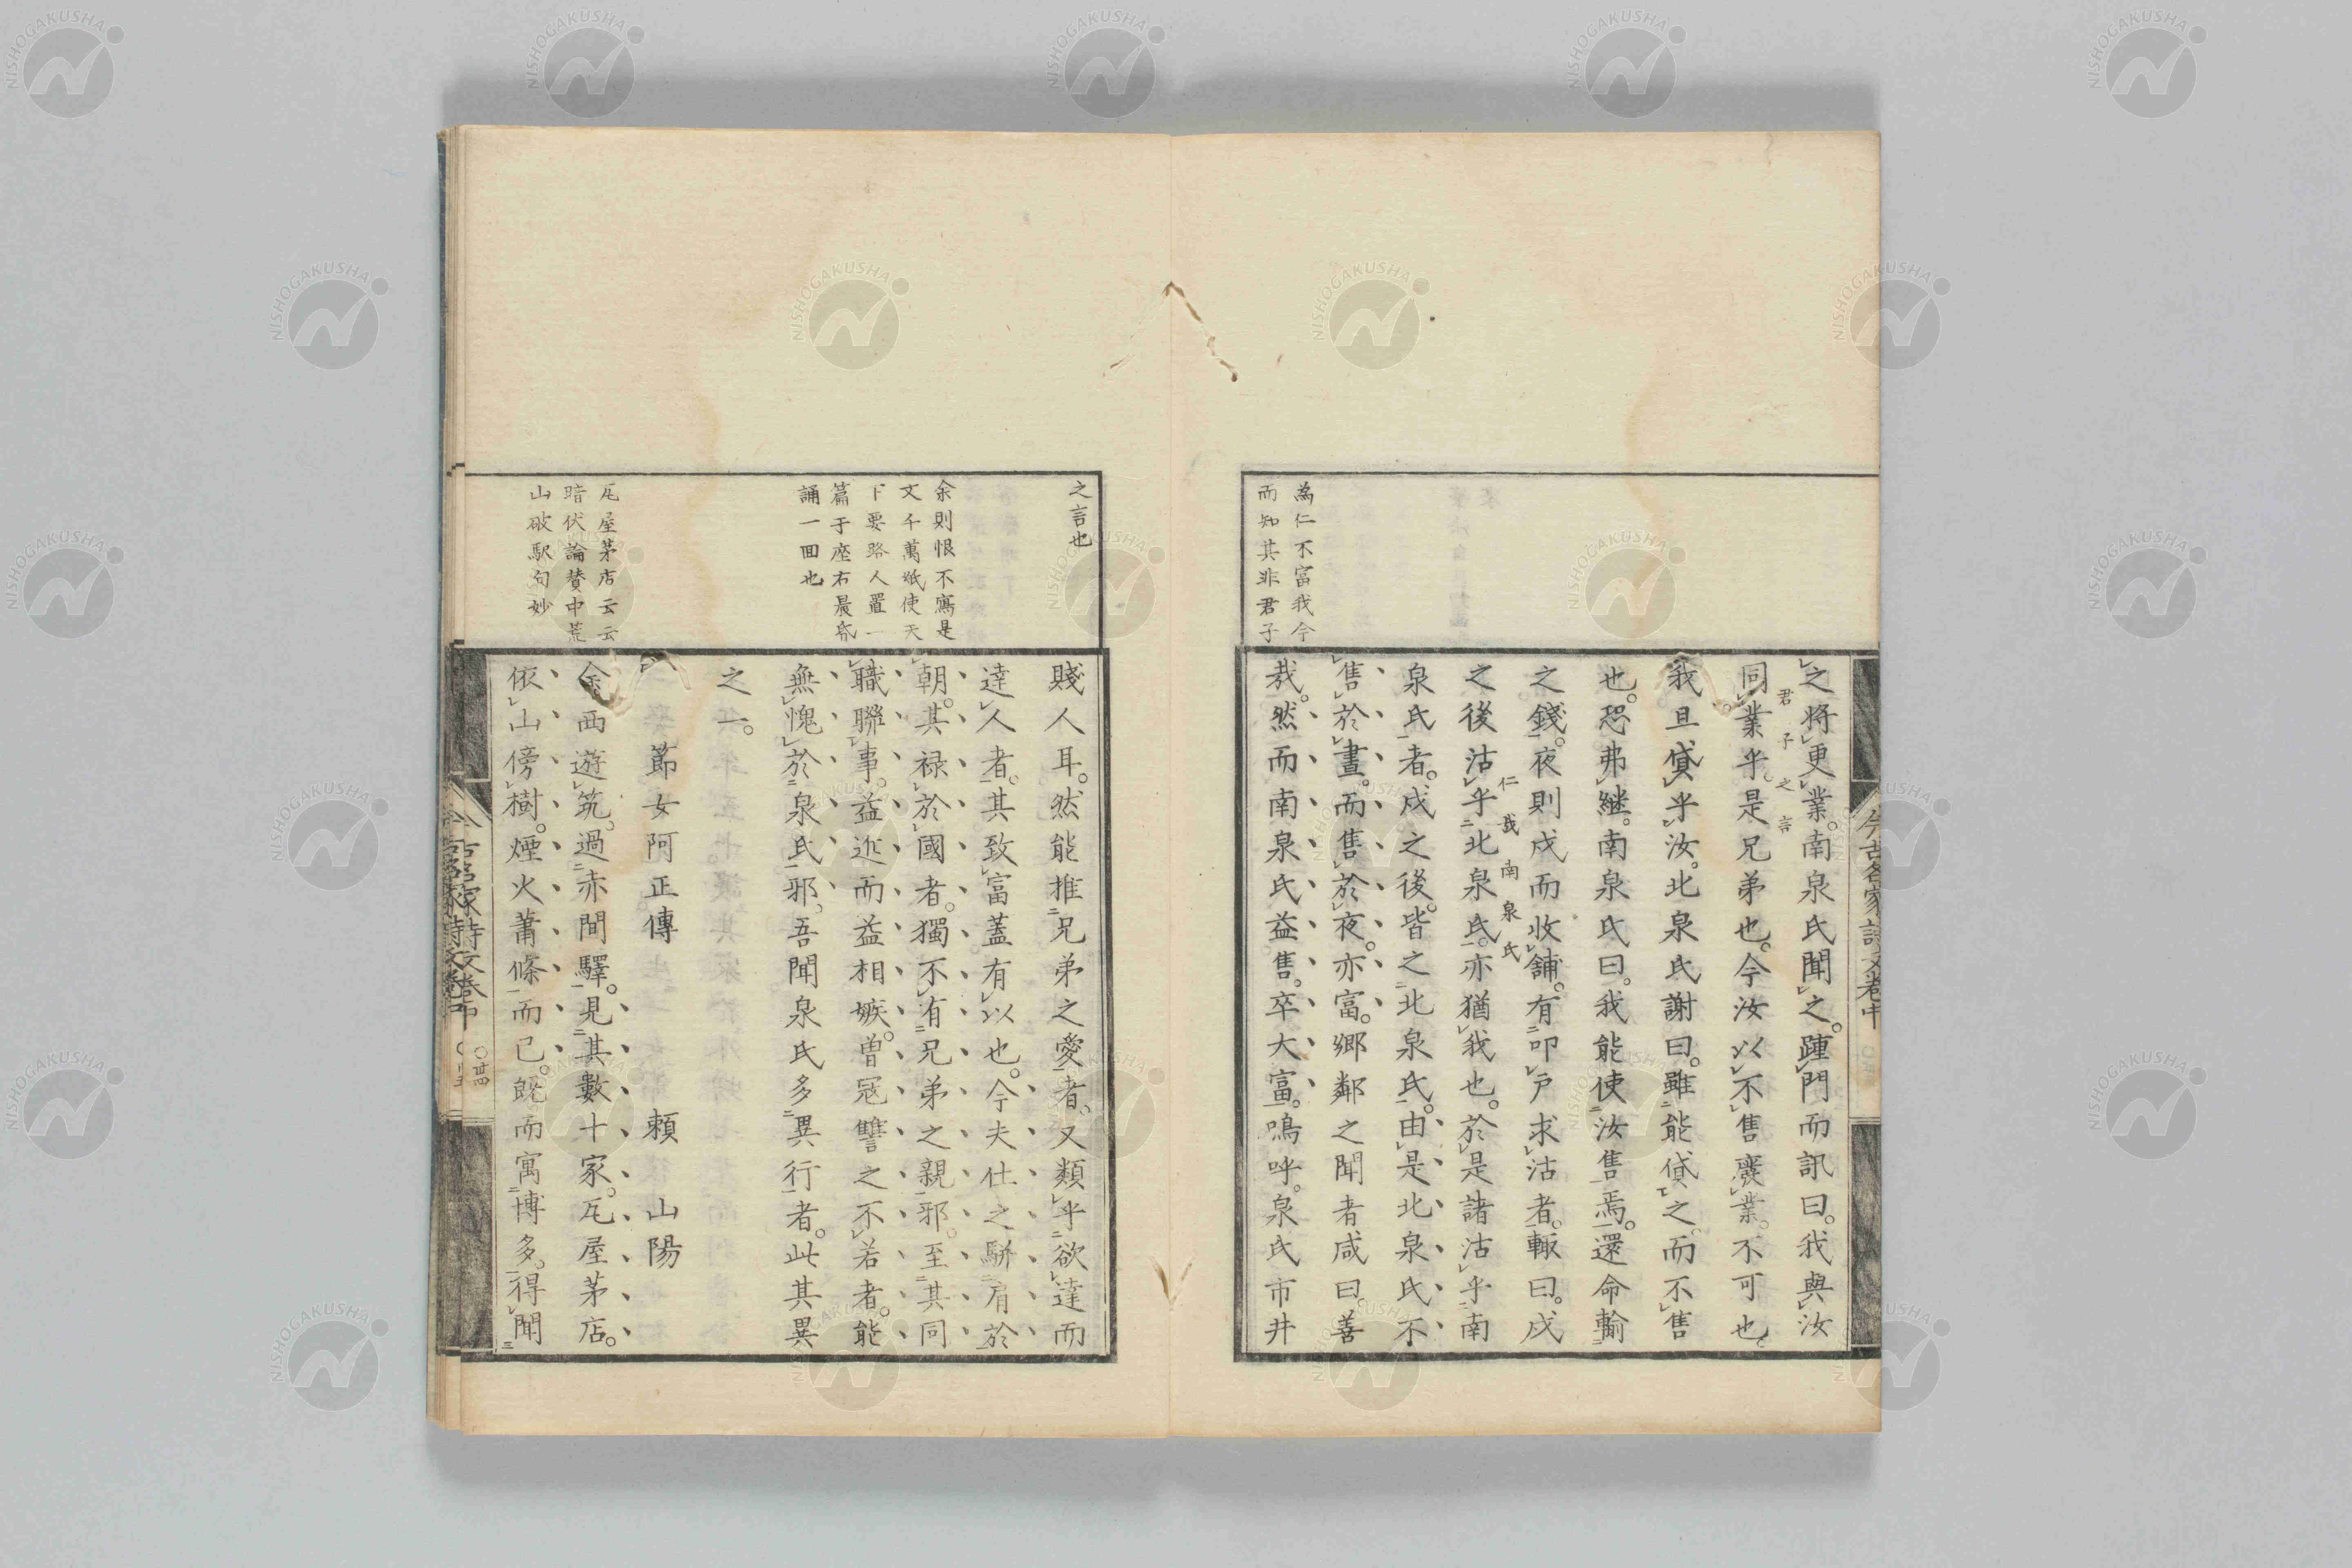 今古名家詩文卷中
之將更業。南泉氏聞之。踵門而訊曰。我與汝
同業乎。是兄弟也。今汝以不售廢業。不可也。
君子之言
我且貸乎汝。北泉氏謝曰。雖能貸之。而不售
也。恐弗継。南泉氏曰。我能使汝售焉。還命輸
之錢。夜則戍而收舖。有叩戸求沽者。輙曰。戍
之後沽乎北泉氏。亦猶我也。於是諸沽乎南
仁哉南泉氏
泉氏者。戍之後。皆之北泉氏。由是北泉氏不
售於晝。而售於夜。亦富。鄉鄰之聞者咸曰。善
哉。然而南泉氏益售。卒大富。嗚呼。泉氏市井
為仁不富我今
而知其非君子
之言也
賤人耳。然能推兄弟之愛者。又類乎欲達而
達人者。其致富蓋有以也。今夫仕之駢肩於
朝。其禄於國者。獨不有兄弟之親邪。至其同
職聯事。益近而益相嫉。曽冦讐之不若者。能
無愧於泉氏邪。吾聞泉氏多異行者。此其異
之一。
余則恨不寫是
文千萬紙使天
下要路人置一
篇于座右晨昏
誦一回也
節女阿正傳　賴山陽
余西遊筑。過赤間驛。見其數十家。瓦屋茅店。
依山傍樹。煙火蕭條而已。既而寓博多。得聞
瓦屋茅店云云
暗伏論賛中荒
山破駅句妙
今古名家詩文卷中
○廿四
NISHOGAKUSHA